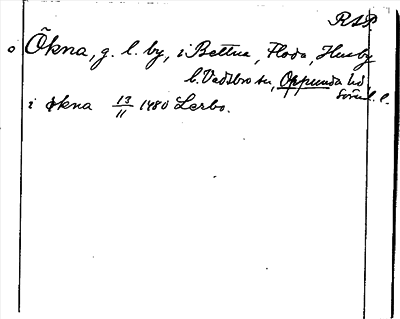 RAP
o Ökna, g. l. by, i Bettna, Floda, Husby
l. Vadsbro sn, Oppunda hd
Söd. l.
i økna 13/11 1480 Lerbo.